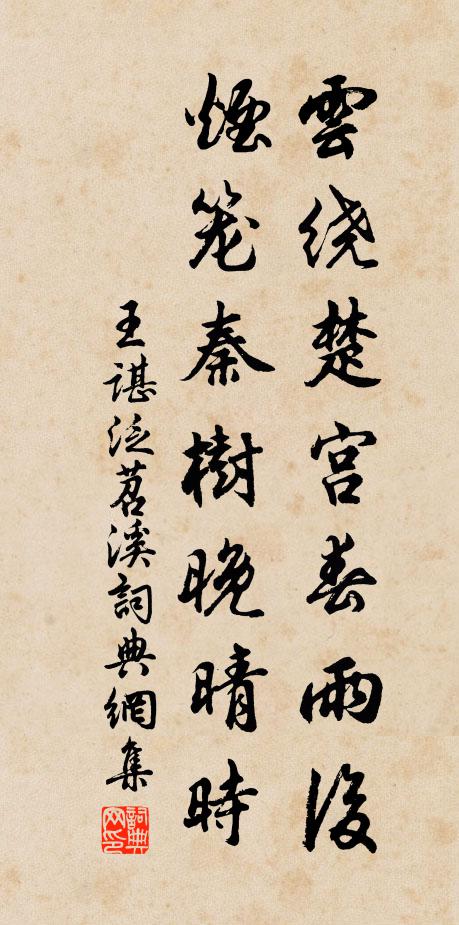 雲繞楚宮春雨後
煙笼秦樹晚晴時
王諶泛苕溪詞典網集
詞典网印